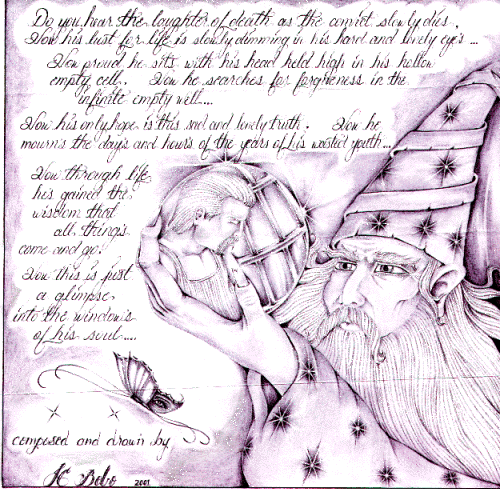 Do you hear the laughter of death as the convict slowly dies.
Now his lust for life is slowly dimming in his hard and lovely eyes ...
Now proud he sits with his head held high in his hollow
empty cell. Now he searches for forgiveness in the
infinite empty well....
Now his only hope is this sad and lonely truth. Now he
mourn's the days and hours of the years of his wasted youth...
Now through life
he's gained the
wisdom that
all thing's
come and go!
Now this is just
a glimpse,
into the window's
of his soul....
composed and drawn by
2001